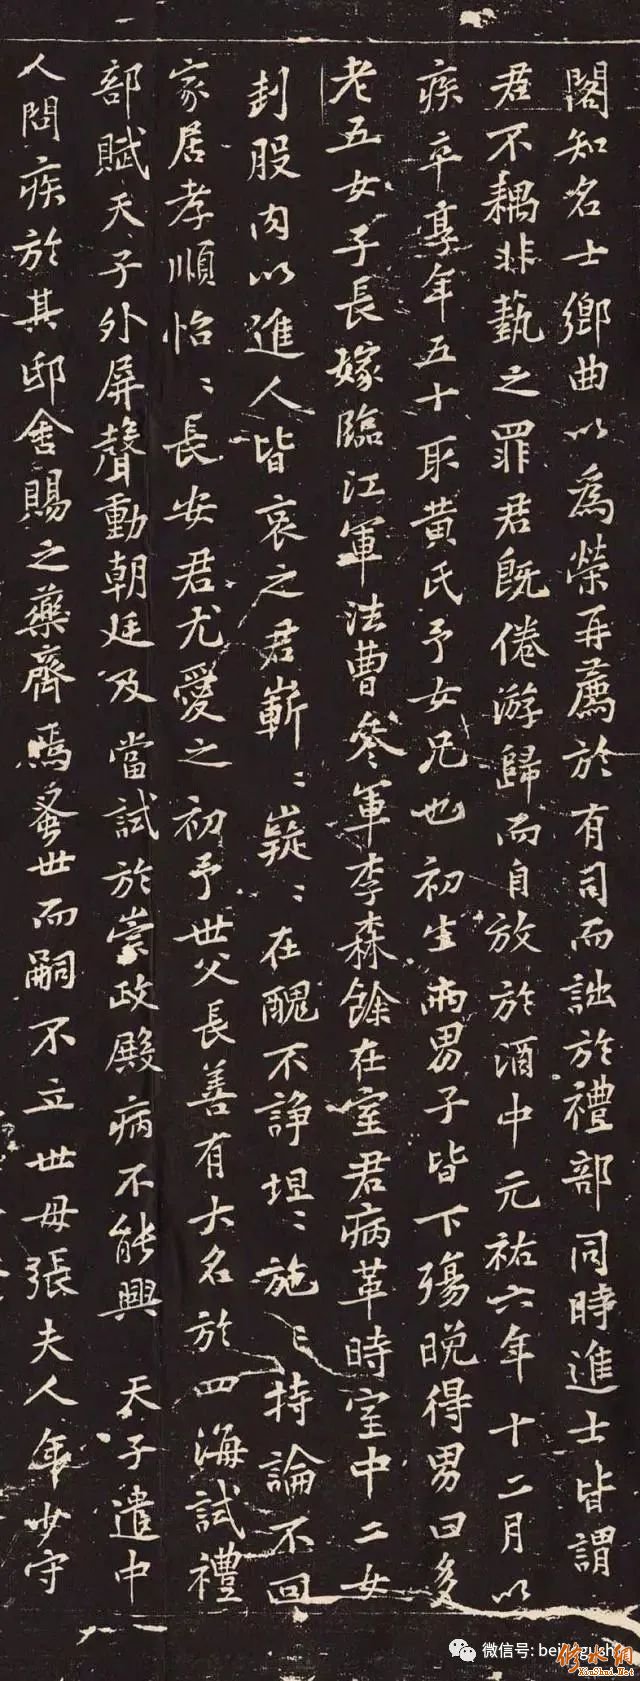 閣知名士鄉曲以爲榮再薦於有司而詘於禮部同時進士皆謂
君不耦非藝之罪君既倦游歸而自放於酒中元祐六年十二月以
疾卒享年五十取黄氏予女兄也初生兩男子皆下殤晚得男曰多
老五女子長嫁臨江軍法曹參軍李森餘在室君病革時室中二女
刲股肉以進人皆哀之君嶄〻嶷〻在醜不諍坦〻施〻持論不回
家居孝順怡〻長安君尤愛之初予世父長善有大名於四海試禮
部賦天子外屏聲動朝廷及當試於崇政殿病不能興 天子遣中
人問疾於其邸舍賜之藥齊焉蚤世而嗣不立世母張夫人年少守
微信号: beij
修水網
XiuShui.Net